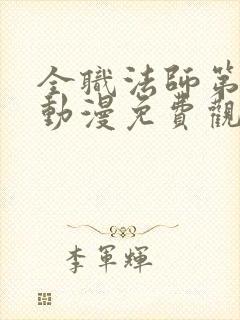 全職法師第
動漫免費觀
李軍輝